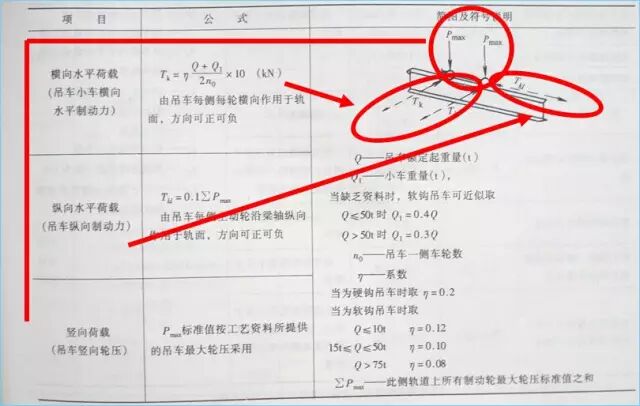 项 目
公 式
简图及符号说明
横向水平荷载
(吊车小车横向
水平制动力)
Tk = η (Q + Q1)/(2n0) ×10 (kN)
由吊车每侧每轮横向作用于轨
面，方向可正可负
Pmax
Pmax
Tkl
Tk
T
Q——吊车额定起重量(t)
Q1——小车重量(t)，
当缺乏资料时，软钩吊车可近似取
Q≤50t 时 Q1 = 0.4Q
Q>50t 时 Q1 = 0.3Q
n0——吊车一侧车轮数
η——系数
当为硬钩吊车时取 η = 0.2
当为软钩吊车时取
Q≤10t η = 0.12
15t≤Q≤50t η = 0.10
Q>75t η = 0.08
∑Pmax——此侧轨道上所有制动轮最大轮压标准值之和
纵向水平荷载
(吊车纵向制动力)
Tkl = 0.1∑Pmax
由吊车每侧主动轮沿梁轴纵向
作用于轨面，方向可正可负
竖向荷载
(吊车竖向轮压)
Pmax标准值按工艺资料所提供
的吊车最大轮压采用